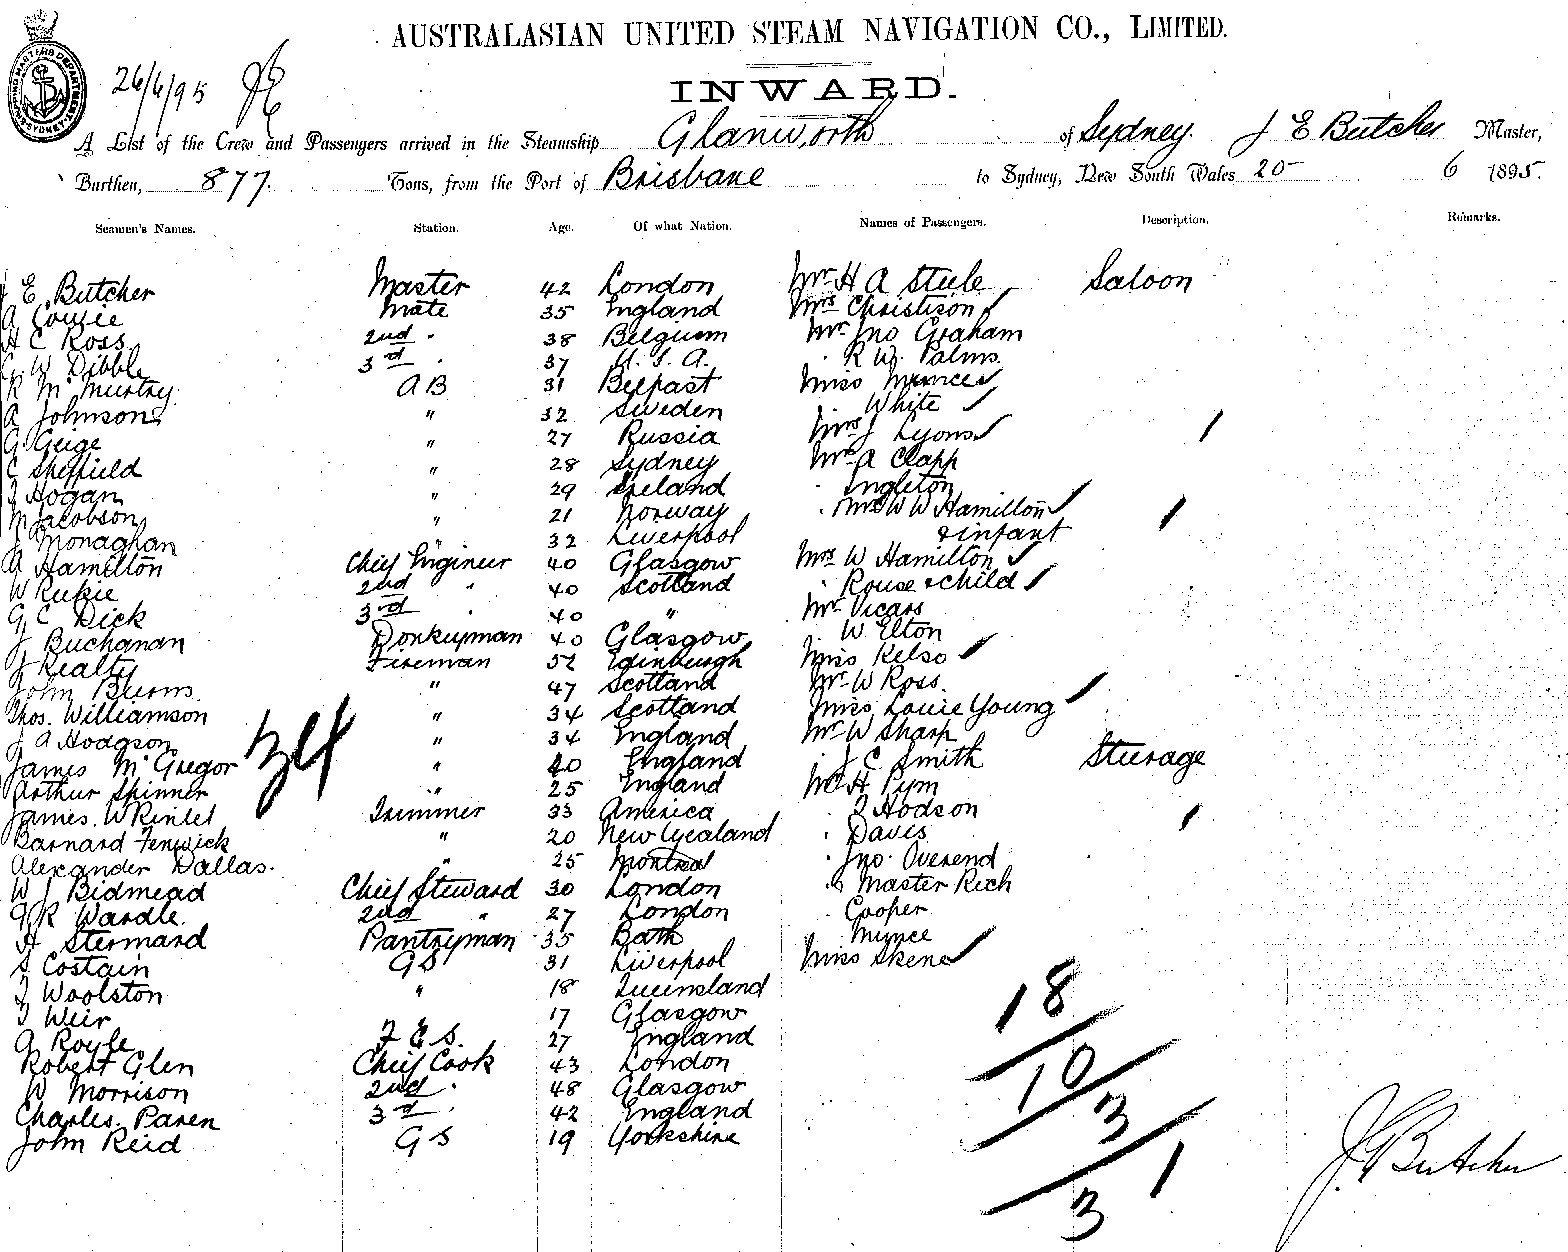 AUSTRALASIAN UNITED STEAM NAVIGATION CO., LIMITED.
26/6/95
INWARD.
A List of the Crew and Passengers arrived in the Steamship Glanworth of Sydney. J E Butcher Master,
Burthen, 877. Tons, from the Port of Brisbane to Sydney, New South Wales 25 6 1895.
Seamen's Names. Station. Age. Of what Nation. Names of Passengers. Description. Remarks.
J E Butcher Master 42 London Mr H A Steele Saloon
A Cowie Mate 35 England Mrs Christison
H C Ross 2nd " 38 Belgium Mr Jno Graham
G W Dibble 3rd " 37 U.S.A. " R W. Palms.
R McMurtry A B 31 Belfast Miss Munce
A Johnson " 32 Sweden White
G Geige " 27 Russia Mrs J Lyons
C Sheffield " 28 Sydney Mr A Clapp
T Hogan " 29 Ireland " Ingleton
M Jacobson " 21 Norway " Mrs W W Hamilton
J Monaghan " 32 Liverpool & infant
A Hamilton Chief Engineer 40 Glasgow Mrs W Hamilton
W Rukie 2nd " 40 Scotland " Rouse & child
G C Dick 3rd " 40 " Mr Vicars
J Buchanan Donkeyman 40 Glasgow W Elton
J Kealty Fireman 52 Edinburgh Miss Kelso
John Burns " 47 Scotland Mr W Ross.
Thos. Williamson " 34 Scotland Miss Louie Young
J A Hodgson " 34 England Mr W Sharp
James McGregor " 40 England " J C Smith Steerage
Arthur Spinner " 25 England H Pym
James W Rintel Trimmer 33 America " T Hodson
Barnard Fenwick " 20 New Zealand " Davis
Alexander Dallas. " 25 Montreal " Jno. Overend
W J Bidmead Chief Steward 30 London " Master Rich
G R Wardle 2nd " 27 London " Cooper
H Stermard Pantryman 35 Bath " Munce
S Costain G S 31 Liverpool Miss Skene
T Woolston " 18 Queensland
T Weir 17 Glasgow
A Royle F. C. S. 27 England
Robert Glen Chief Cook 43 London
W Morrison 2nd " 48 Glasgow
Charles Paren 3rd " 42 England
John Reid G S 19 Yorkshire
34
18
10
3
1
3
J E Butcher